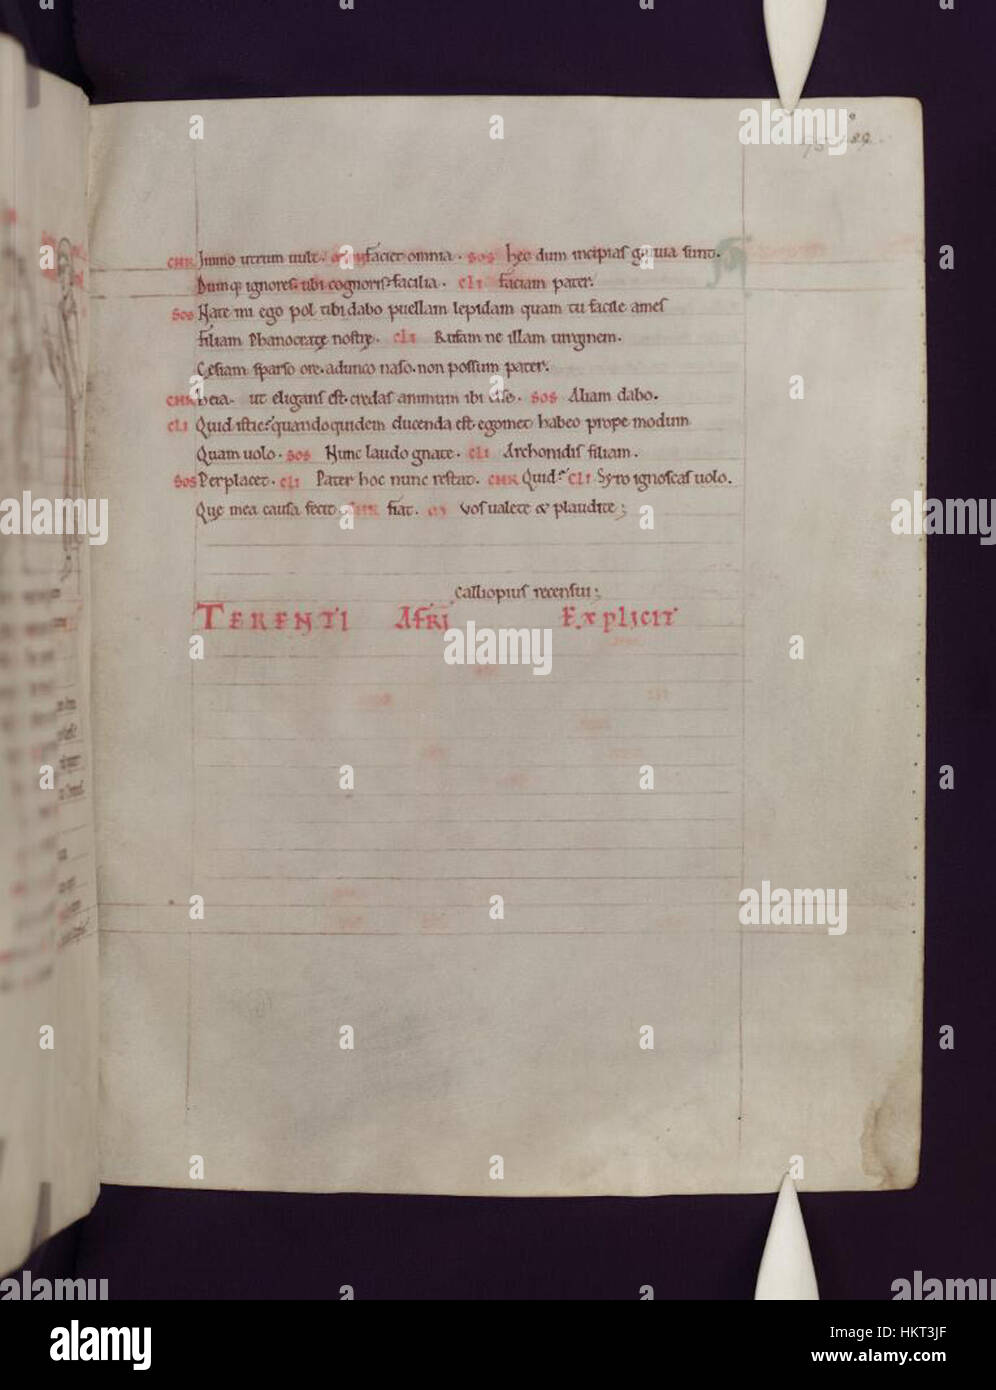 75 89.
CHR Immo utrum uult. faciet omnia. SOS hec dum incipias grauia sunt.
Dumq; ignores. ubi cognoris. facilia. CLI faciam pater.
SOS Nate mi ego pol tibi dabo puellam lepidam quam tu facile ames
filiam Phanocrate nostre. CLI Rufam ne illam uirginem.
Cesiam sparso ore. adunco naso. non possum pater.
CHR heia. ut eligans est. credas animum ibi esse. SOS Aliam dabo.
CLI Quid istic? quandoquidem ducenda est. egomet habeo prope modum
Quam uolo. SOS Nunc laudo gnate. CLI Archonidis filiam.
SOS Perplacet. CLI Pater hoc nunc restat. CHR Quid? CLI Syro ignoscas uolo.
Que mea causa fecit. CHR fiat. ω uos ualete & plaudite;
Calliopius recensui;
TERENTI AFRI EXPLICIT
alamy
Image ID: HKT3JF
www.alamy.com